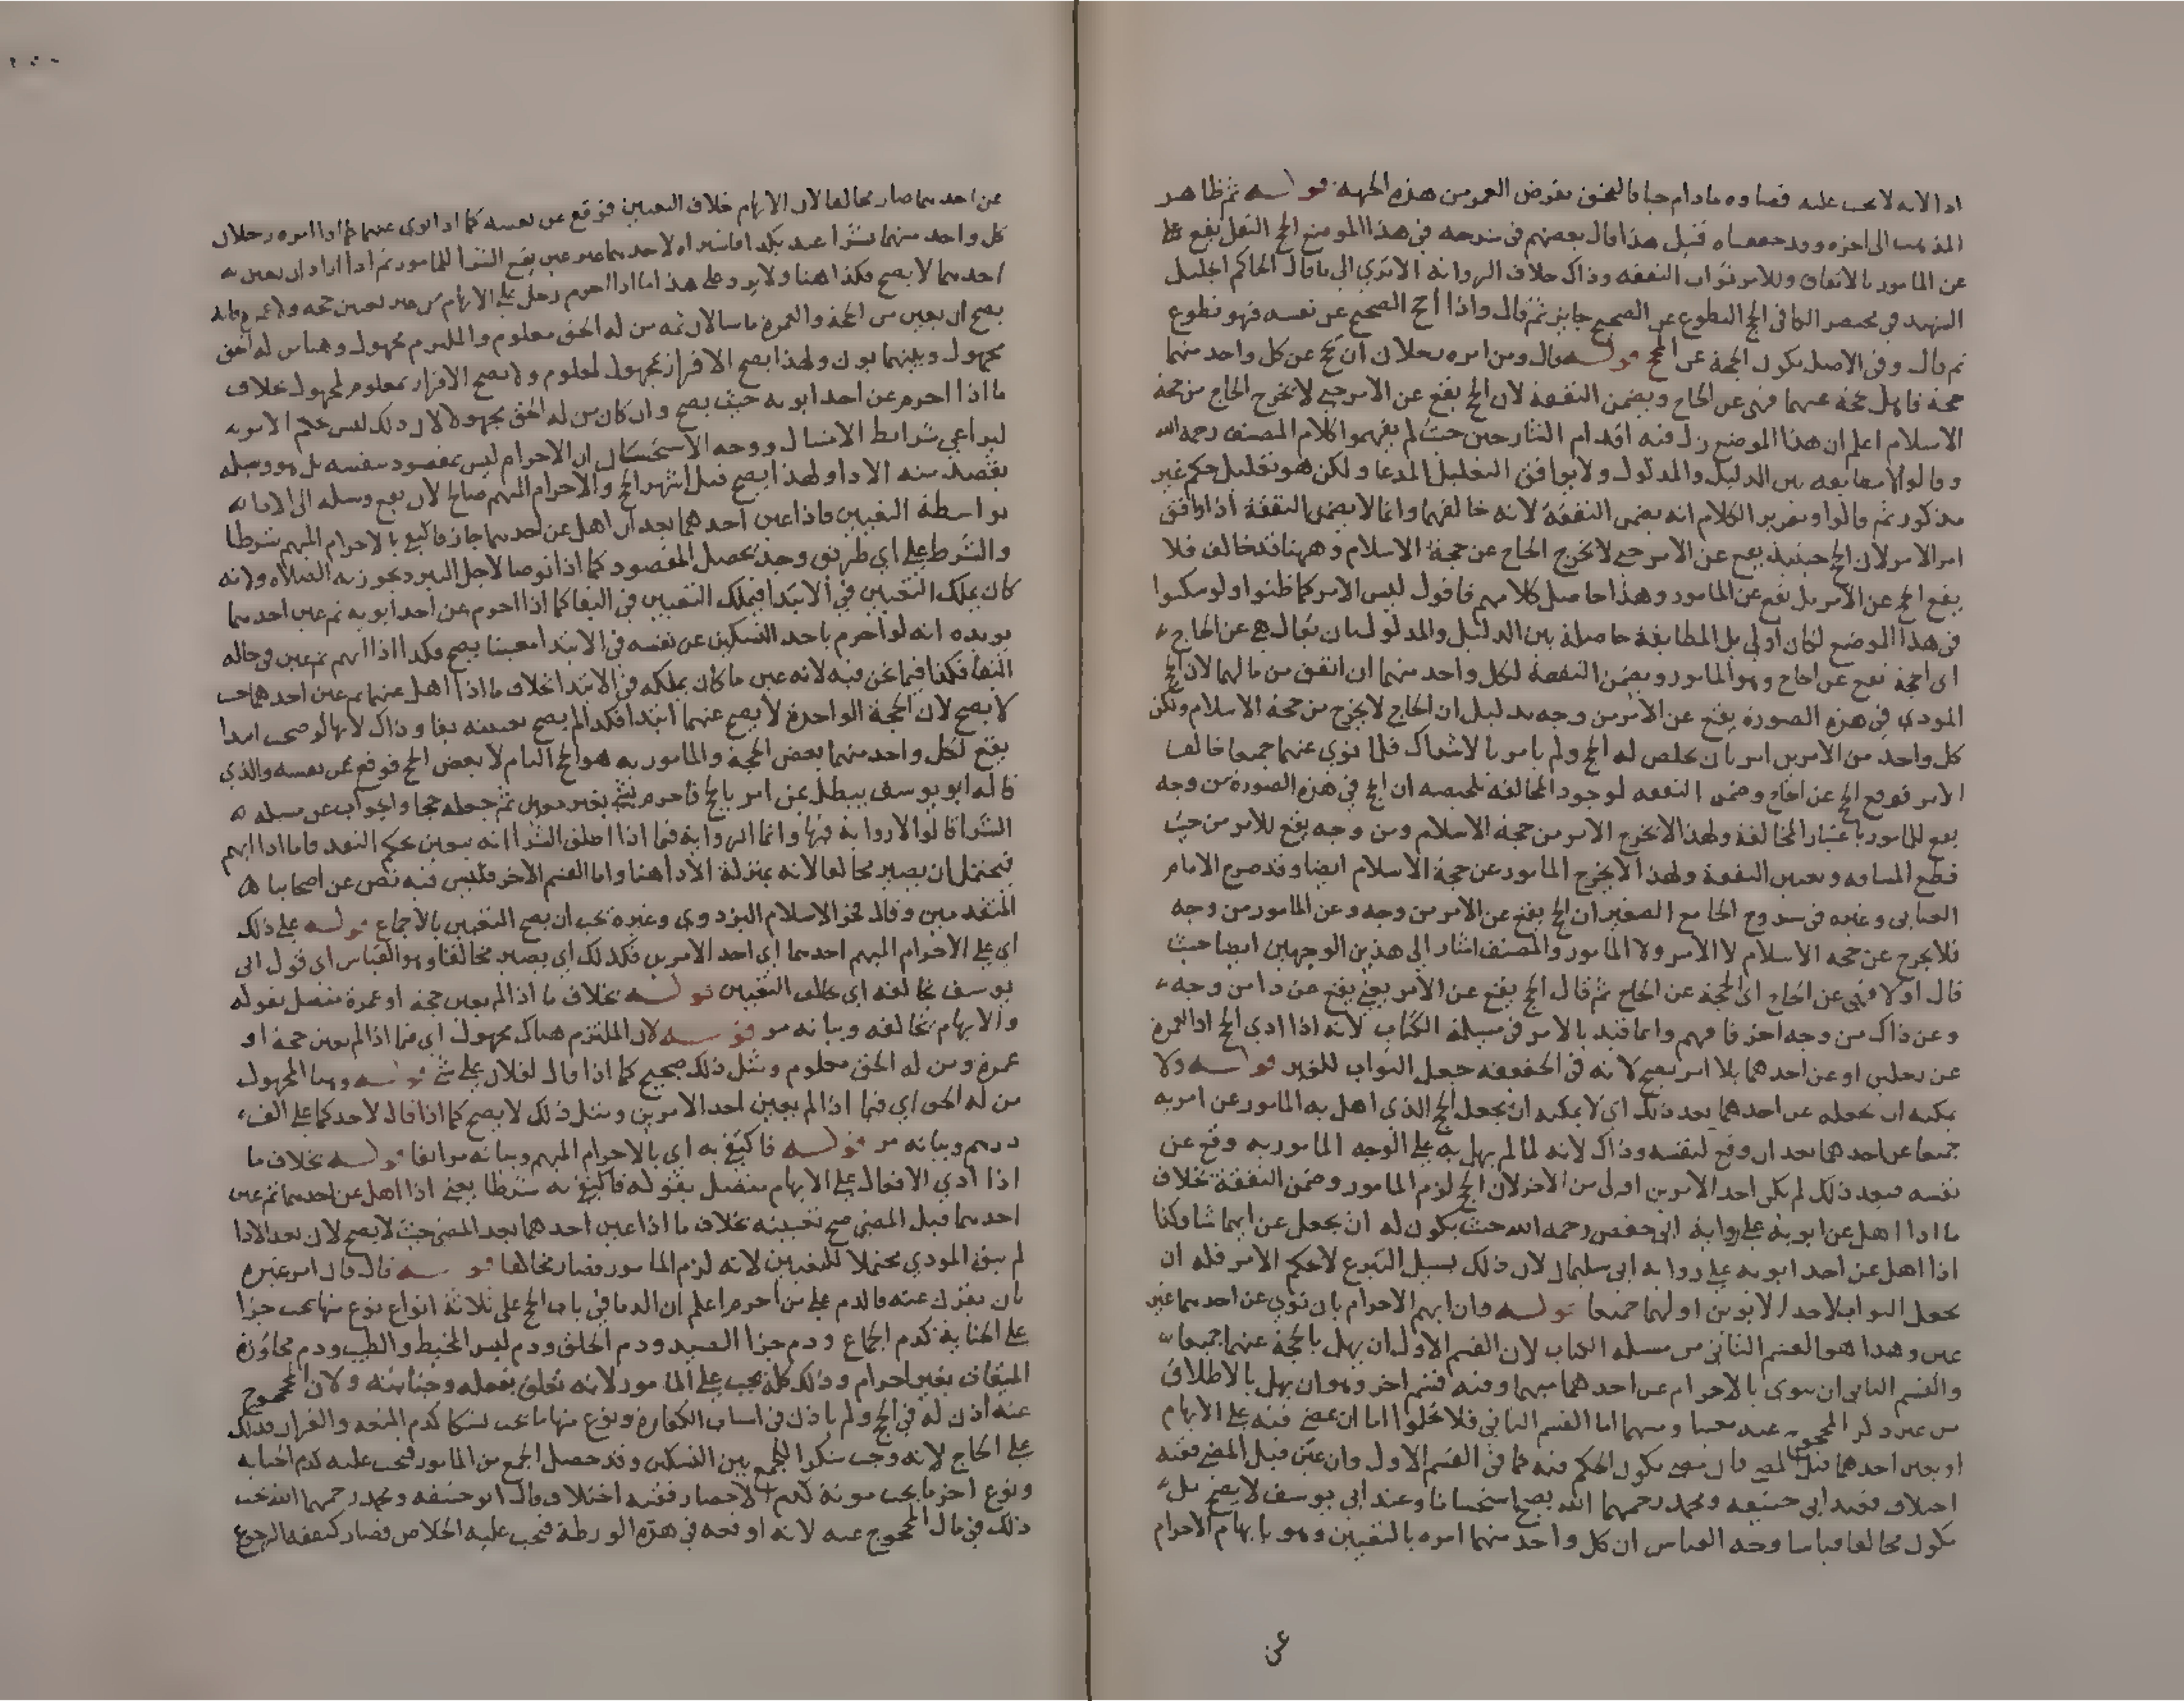 ادا الا انه لا يجب عليه قضاوه مادام حيا فالتحق بفرض العمر من هذه الجهة قوله ثم ظاهر
المذهب الى اخره وقد حققناه قبل هذا قال بعضهم في شرحه في هذا الموضع الحج النفل يقع
عن المامور بالاتفاق وللامر ثواب النفقه وذاك خلاف الروايه الا ترى الى ما قال الحاكم الجليل
الشهيد في مختصر الكافي الحج التطوع عن الصحيح جايز ثم قال واذا احج الصحيح عن نفسه فهو تطوع
ثم قال وفي الاصل يكون الحجة عن المحج قوله قال ومن امره رجلان ان يحج عن كل واحد منهما
حجة فاهل بحجة عنهما فهي عن الحاج ويضمن النفقة لان الحج يقع عن الامر حتى لا يخرج الحاج من حجة
الاسلام اعلم ان هذا الموضع زل فيه اقدام الشارحين حيث لم يفهموا كلام المصنف رحمه الله
وقالوا لا مطابقه بين الدليل والمدلول ولا يوافق التعليل المدعا ولكن هو تعليل حكم غير
مذكور ثم قالوا وتقرير الكلام انه يضمن النفقة لانه خالفهما وانما لا يضمن النفقة اذا وافق
امر الامر لان الحج حينيذ يقع عن الامر حتى لا يخرج الحاج عن حجة الاسلام وههنا قد خالف فلا
يقع الحج عن الامر بل يقع عن المامور وهذا حاصل كلامهم فاقول ليس الامر كما ظنوا ولو سكتوا
في هذا الموضع لكان اولى بل المطابقة حاصلة بين الدليل والمدلول بان يقال هي عن الحاج
اى الحجة تقع عن الحاج وهو المامور ويضمن النفقة لكل واحد منهما ان انفق من مالهما لان الحج
المودى في هذه الصورة يقع عن الامر من وجه بدليل ان الحاج لا يخرج من حجة الاسلام ولكن
كل واحد من الامرين امر بان يخلص له الحج ولم يامر بالاشتراك فلما نوى عنهما جميعا خالف
الامر فوقع الحج عن الحاج وضمن النفقه لوجود المخالفه تلخيصه ان الحج في هذه الصورة من وجه
يقع للمامور باعتبار المخالفة ولهذا لا يخرج الامر من حجة الاسلام ومن وجه يقع للامر من حيث
قطع المسافه وتعيين النفقة ولهذا لا يخرج المامور عن حجة الاسلام ايضا وقد صرح الامام
العتابى وغيره في شروح الجامع الصغير ان الحج يقع عن الامر من وجه وعن المامور من وجه
فلا يخرج عن حجه الاسلام لا الامر ولا المامور والمصنف اشار الى هذين الوجهين ايضا حيث
قال اولا فهي عن الحاج اى الحجة عن الحاج ثم قال الحج يقع عن الامر يعني يقع عن ذا من وجه
وعن ذاك من وجه اخر فافهم وانما قيد بالامر في مسيلة الكتاب لانه اذا ادى الحج او العمرة
عن رجلين او عن احدهما بلا امر يصح لانه في الحقيقه جعل الثواب للغير قوله ولا
يمكنه ان يجعله عن احدهما بعد ذلك اى لا يمكنه ان يجعل الحج الذى اهل به المامور عن امريه
جميعا عن احدهما بعد ان وقع لنفسه وذاك لانه لما لم يهل به على الوجه المامور به وقع عن
نفسه فبعد ذلك لم يكن احد الامرين اولى من الاخر لان الحج لزم المامور وضمن النفقة بخلاف
ما اذا اهل عن ابويه على رواية ابى حفص رحمه الله حيث يكون له ان يجعل عن ايهما شا وكذا
اذا اهل عن احد ابويه على روايه ابى سليمان لان ذلك بسبيل التبرع لا حكم الامر فله ان
يجعل الثواب لاحد الابوين او لهما جميعا قوله وان ابهم الاحرام بان نوى عن احدهما غير
عين وهذا هو القسم الثانى من مسيله الكتاب لان القسم الاول ان يهل بالحجة عنهما جميعا
والقسم الثانى ان ينوى بالاحرام عن احدهما مبهما وفيه قسم اخر وهو ان يهل بالاطلاق
من غير ذكر المحجوج عنه معينا ومبهما اما القسم الثانى فلا يخلو اما ان مضى فيه على الابهام
او يعين احدهما قبل المضي فان مضى يكون الحكم فيه كما في القسم الاول وان عين قبل المضي ففيه
اختلاف فعند ابى حنيفه ومحمد رحمهما الله يصح استحسانا وعند ابى يوسف لا يصح بل
يكون مخالفا قياسا وجه القياس ان كل واحد منهما امره بالتعيين وهو بابهام الاحرام
عن
عن احدهما صار مخالفا لان الابهام خلاف التعيين فوقع عن نفسه كما اذا نوى عنهما
كل واحد منهما بشرا عبد بكذا فاشتراه لاحدهما غير عين يقع الشرا للمامور ثم اذا اراد ان يعين به
احدهما لا يصح فكذا هنا ولا يرد على هذا ما اذا احرم رجل على الابهام من غير تعيين حجه ولا عمره
يصح ان يعين من الحجة والعمرة ما شا لان ثمه من له الحق معلوم والملتزم مجهول وههنا من له الحق
مجهول وبينهما بون ولهذا يصح الاقرار بمجهول لمعلوم ولا يصح الاقرار بمعلوم لمجهول بخلاف
ما اذا احرم عن احد ابويه حيث يصح وان كان من له الحق مجهولا لان ذلك ليس بحكم الامر به
ليراعى شرايط الامتثال ووجه الاستحسان ان الاحرام ليس بمقصود بنفسه بل هو وسيله
يقصد منه الادا ولهذا يصح قبل اشهر الحج والاحرام المبهم صالح لان يقع وسيله الى الافعال
بواسطة التعيين فاذا عين احدهما بعد ان اهل عن احدهما جاز فاكتفى بالاحرام المبهم شرطا
والشرط على اي طريق وجد يحصل المقصود كما اذا توضا لاجل التبرد يجوز به الصلاه ولانه
كان يملك التعيين في الابتدا فيملك التعيين في البقا كما اذا احرم عن احد ابويه ثم عين احدهما
يويده انه لو احرم باحد النسكين عن نفسه في الابتدا معينا يصح فكذا اذا ابهم ثم عين في حاله
البقا فكذا فيما نحن فيه لانه عين ما كان يملكه في الابتدا بخلاف ما اذا اهل عنهما ثم عين احدهما حيث
لا يصح لان الحجة الواحدة لا يصح عنهما ابتدا فكذا لم يصح تعيينه بقا وذاك لانها لو صحت ابتدا
يقع لكل واحد منهما بعض الحجة والمامور به هو الحج التام لا بعض الحج فوقع عن نفسه والذي
قاله ابو يوسف يبطل عن امر بالحج فاحرم بغير عين ثم جعله حجا والجواب عن مسيله
الشرا قالوا لا رواية فيها وانما الرواية فيما اذا اطلق الشرا انه يتعين بحكم النقد فاما اذا ابهم
فيحتمل ان يصير مخالفا لانه بمنزلة الادا هنا واما القسم الاخر فليس فيه نص عن اصحابنا
المتقدمين وقال فخر الاسلام البزدوى وغيره يجب ان يصح التعيين بالاجماع قوله على ذلك
اي على الاحرام المبهم احدهما اي احد الامرين فكذلك اي يصير مخالفا وهو القياس اي قول ابى
يوسف يخالفه اى يخالف التعيين قوله بخلاف ما اذا لم يعين حجة او عمرة متصل بقوله
والابهام يخالفه وبيانه مر قوله لان الملتزم هناك مجهول اي فيما اذا لم يعين حجة او
عمرة ومن له الحق معلوم ومثل ذلك صحيح كما اذا قال لفلان على شي قوله وههنا المجهول
من له الحق اي فيما اذا لم يعين احد الامرين ومثل ذلك لا يصح كما اذا قال لاحدكما على الف
درهم وبيانه مر قوله فاكتفى به اى بالاحرام المبهم وبيانه مر انفا قوله بخلاف ما
اذا ادي الافعال على الابهام متصل بقوله فاكتفى به شرطا يعني اذا اهل عن احدهما ثم عين
احدهما قبل المضي صح تعيينه بخلاف ما اذا عين احدهما بعد المضي حيث لا يصح لان بعد الادا
لم يبق المودي محتملا للتعيين لانه لزم المامور فصار مخالفا قوله قال فان امر غيره
بان يقرن عنه فالدم على من احرم اعلم ان الدما في باب الحج على ثلاثة انواع نوع منها يجب جزا
على الجناية كدم الجماع ودم جزا الصيد ودم الحلق ودم لبس المخيط والطيب ودم مجاوزة
الميقات بغير احرام وذلك كله يجب على المامور لانه تعلق بفعله وجنايته ولان المحجوج
عنه اذن له في الحج ولم ياذن في اسباب الكفارة ونوع منها ما يجب نسكا كدم المتعه والقران فذلك
على الحاج لانه وجب شكرا للجمع بين النسكين وقد حصل الجمع من المامور فيجب عليه كدم الجنايه
ونوع اخر ما يجب مونة كدم الاحصار ففيه اختلاف قال ابو حنيفه ومحمد رحمهما الله يجب
ذلك في مال المحجوج عنه لانه اوقعه في هذه الورطة فيجب عليه الخلاص فصار كنفقه الرجوع